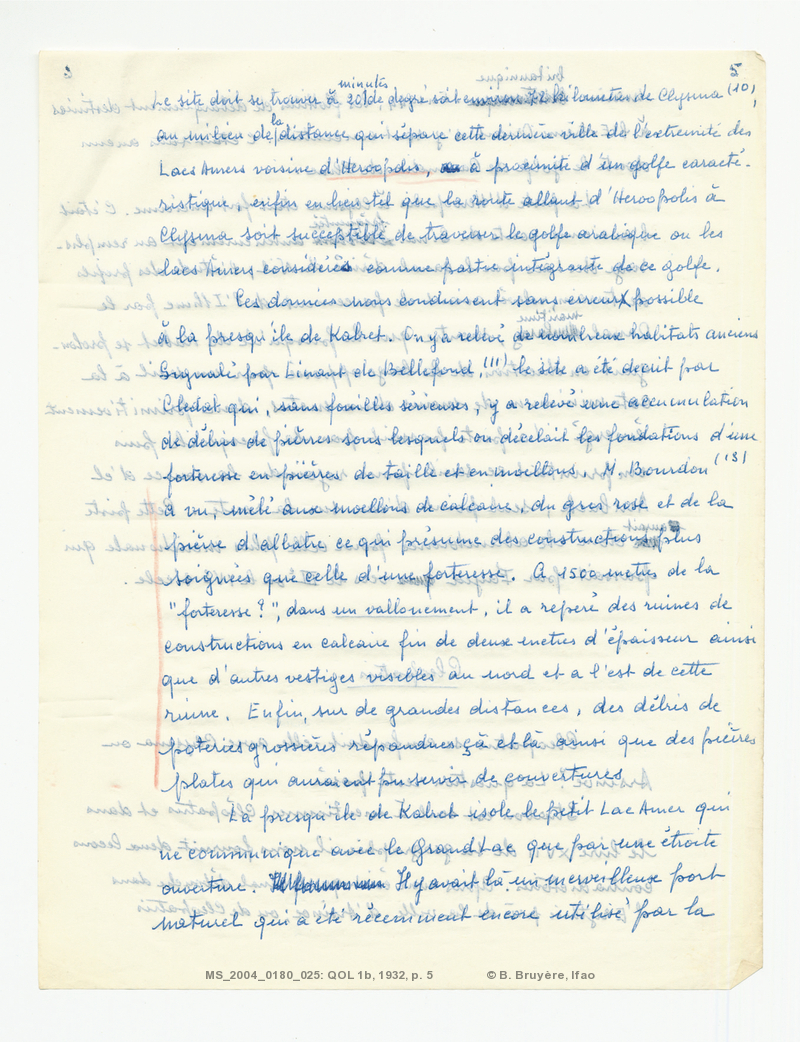 5
minutes
Le site doit se trouver à 20 de degré soit 72 kilomètres de Clysma (10),
la
au milieu de distance qui sépare cette dernière ville de l'extremité des
Lacs Amers voisine d'Heroopolis, à proximité d'un golfe caracté-
ristique, enfin en lieu tel que la route allant d'Heroopolis à
Clysma soit susceptible de traverser le golfe arabique ou les
lacs Amers considérés comme partie intégrante de ce golfe.
Ces données nous conduisent sans erreur possible
maritime
à la presqu'ile de Kabret. On y a relevé de nombreux habitats anciens
Signalé par Linant de Bellefond (11) le site a été decrit par
Cledat qui, sans fouilles sérieuses, y a relevé une accumulation
de débris de pierres sous lesquels on décelait les fondations d'une
forteresse en pierres de taille et en moellons. M. Bourdon (13)
a vu, mêlé aux moellons de calcaire, du gres rose et de la
pierre d'albatre ce qui présume des constructions plus
soignées que celle d'une forteresse. A 1500 metres de la
"forteresse?", dans un vallonement, il a reperé des ruines de
constructions en calcaire fin de deux metres d'épaisseur ainsi
que d'autres vestiges visibles au nord et a l'est de cette
ruine. Enfin, sur de grandes distances, des débris de
poteries grossières répandues çà et là ainsi que des pierres
plates qui auraient pu servir de couvertures.
La presqu'ile de Kabret isole le petit Lac Amer qui
ne communique avec le Grand Lac que par une étroite
ouverture. Il y avait là un merveilleux port
naturel qui a été récemment encore utilisé par la
MS_2004_0180_025: QOL 1b, 1932, p. 5 © B. Bruyère, Ifao